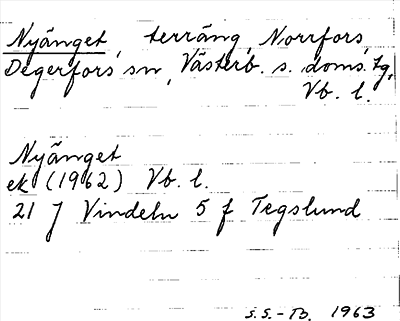 Nyänget, terräng, Norrfors,
Degerfors sn, Västerb. s. doms. tg,
Vb. l.
Nyänget
ek (1962) Vb. l.
21 J Vindeln 5 f Tegslund
S.S.-B. 1963